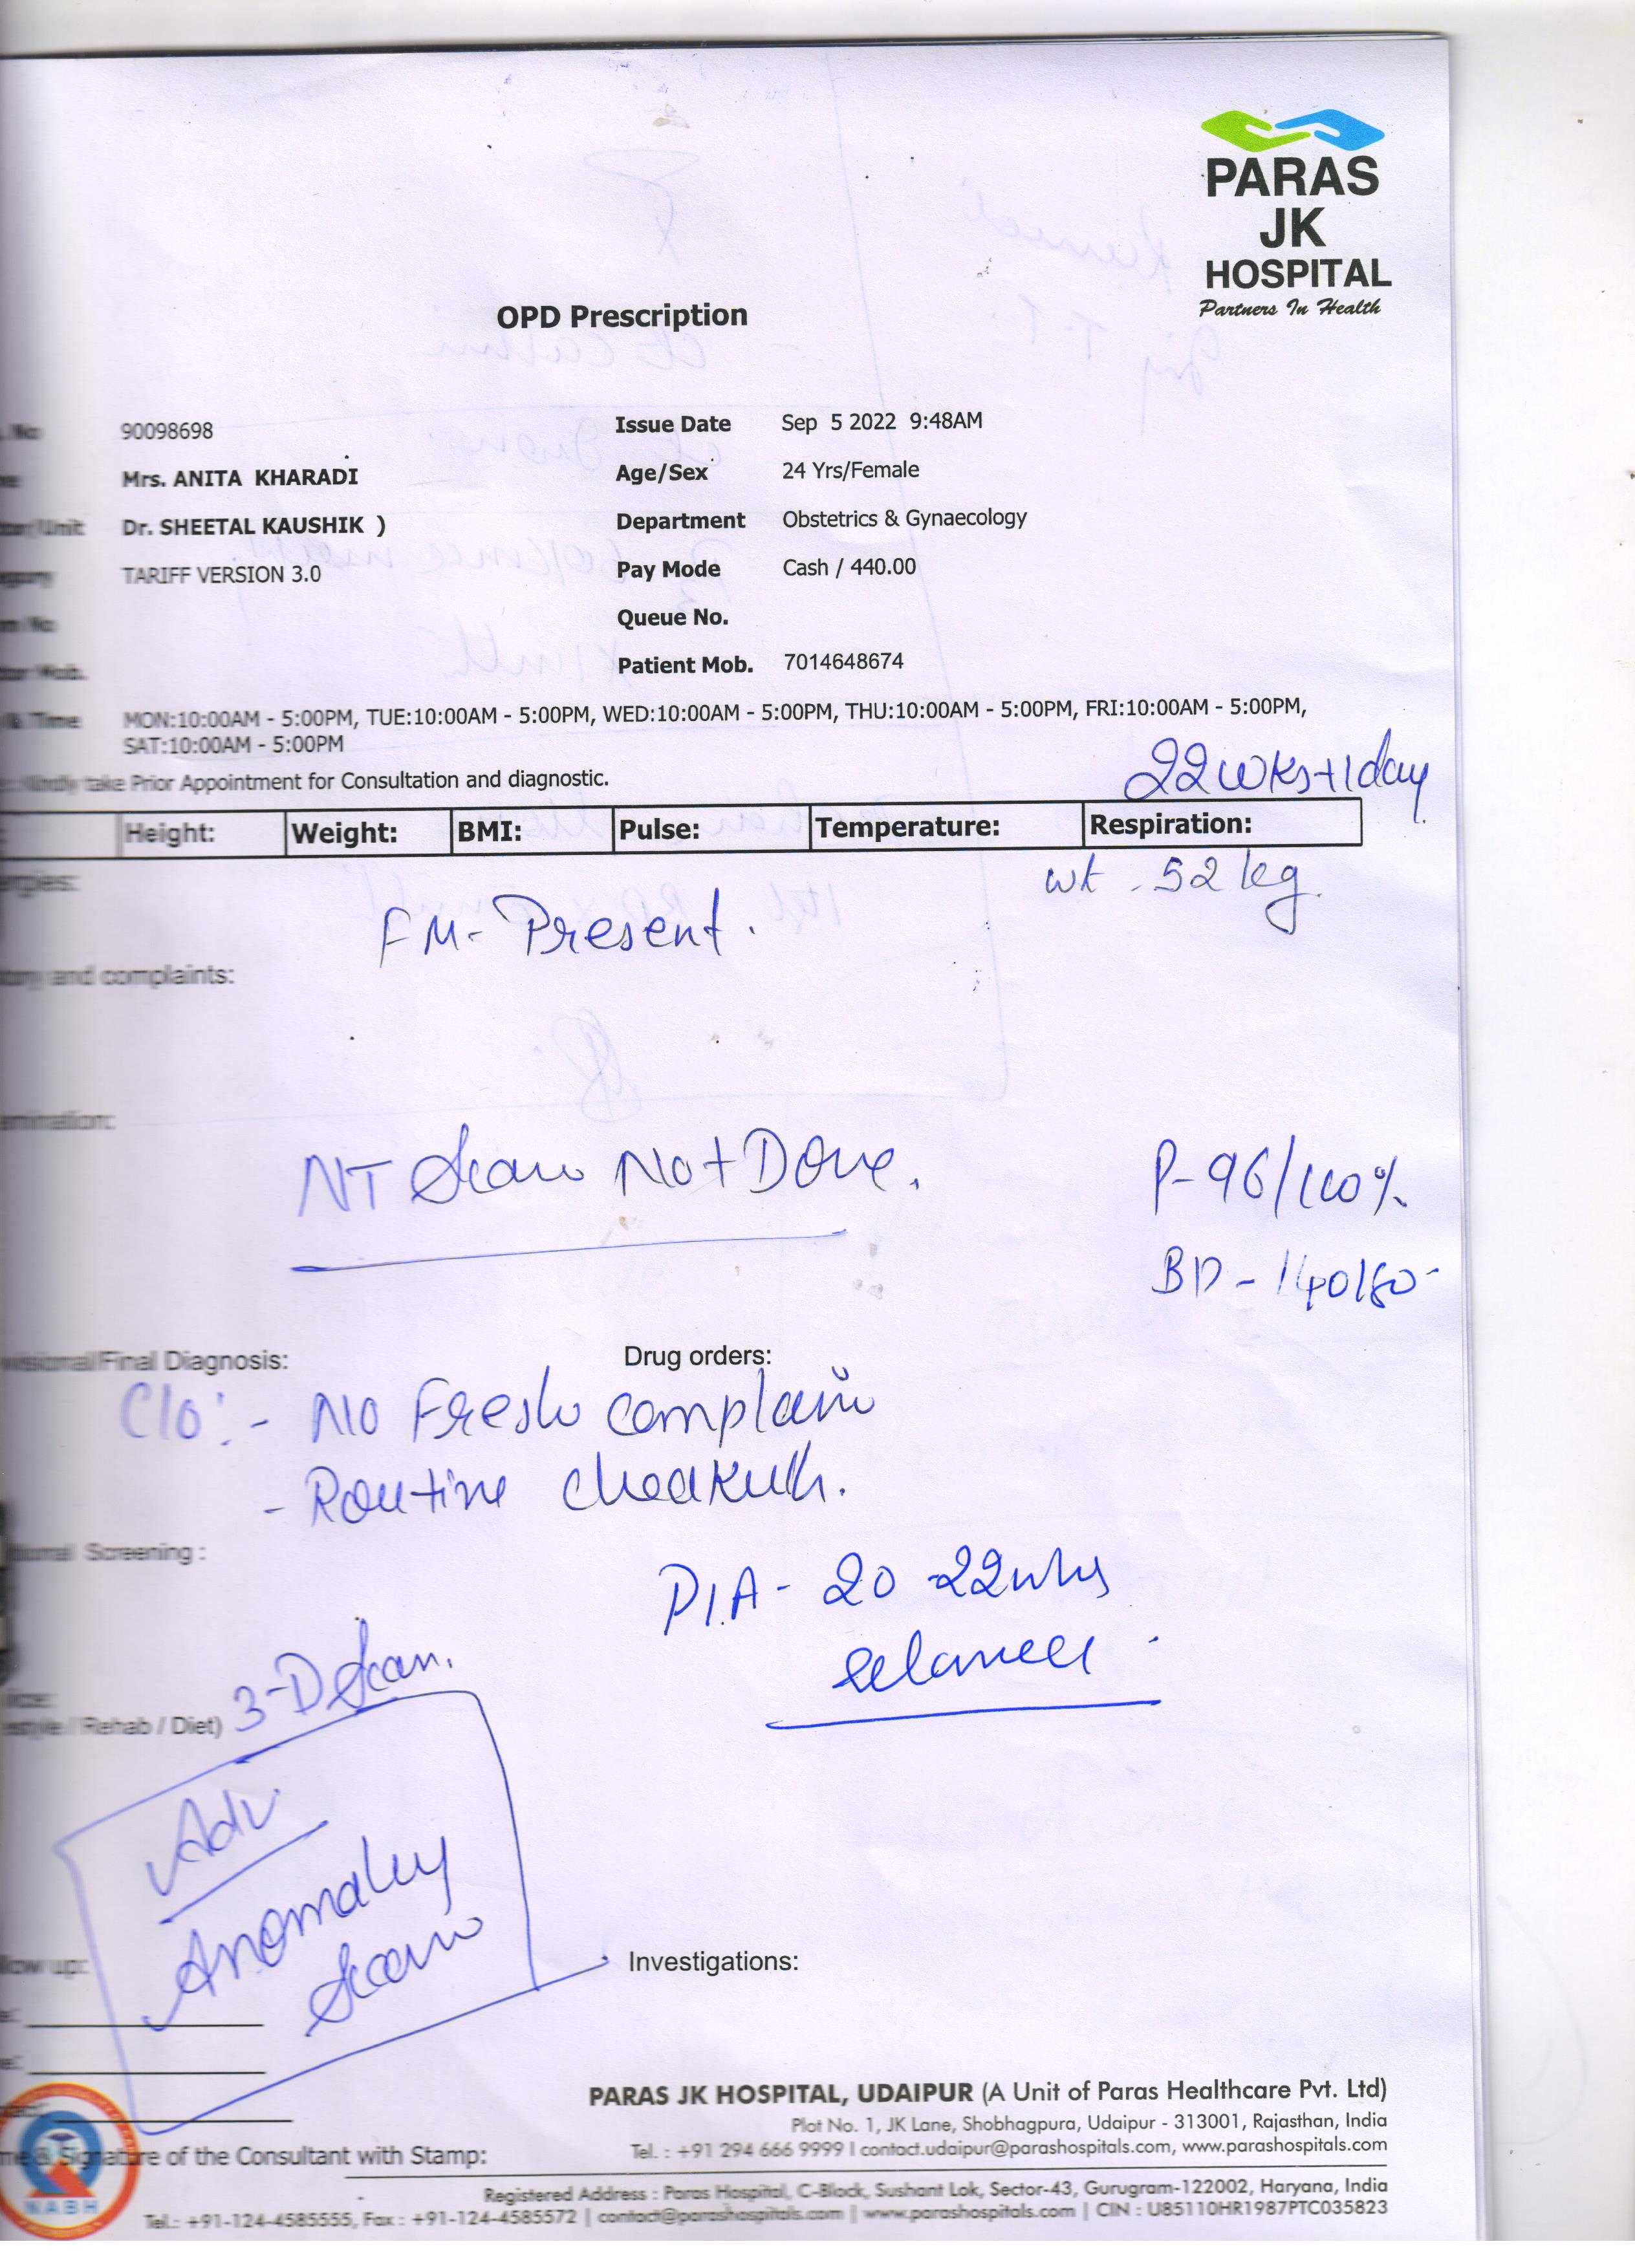 PARAS
JK
HOSPITAL
Partners In Health
OPD Prescription
No 90098698 Issue Date Sep 5 2022 9:48AM
Mrs. ANITA KHARADI Age/Sex 24 Yrs/Female
/Unit Dr. SHEETAL KAUSHIK ) Department Obstetrics & Gynaecology
TARIFF VERSION 3.0 Pay Mode Cash / 440.00
No Queue No.
Mob. Patient Mob. 7014648674
& Time MON:10:00AM - 5:00PM, TUE:10:00AM - 5:00PM, WED:10:00AM - 5:00PM, THU:10:00AM - 5:00PM, FRI:10:00AM - 5:00PM,
SAT:10:00AM - 5:00PM
take Prior Appointment for Consultation and diagnostic.
22 wks+1day
Height: Weight: BMI: Pulse: Temperature: Respiration:
wt - 52 kg.
FM- Present.
and complaints:
NT Scan Not Done.
P-96/100%
BP - 140/80
/Final Diagnosis: Drug orders:
C/o:- No Fresh
- Routine
Screening :
P/A- 20-22wks
3-D Scan.
/ Rehab / Diet)
Adv
Anomaley
Scan
up: Investigations:
PARAS JK HOSPITAL, UDAIPUR (A Unit of Paras Healthcare Pvt. Ltd)
Plot No. 1, JK Lane, Shobhagpura, Udaipur - 313001, Rajasthan, India
Signature of the Consultant with Stamp: Tel. : +91 294 666 9999 I contact.udaipur@parashospitals.com, www.parashospitals.com
NABH
Registered Address : Paras Hospital, C-Block, Sushant Lok, Sector-43, Gurugram-122002, Haryana, India
Tel.: +91-124-4585555, Fax : +91-124-4585572 | contact@parashospitals.com | www.parashospitals.com | CIN : U85110HR1987PTC035823